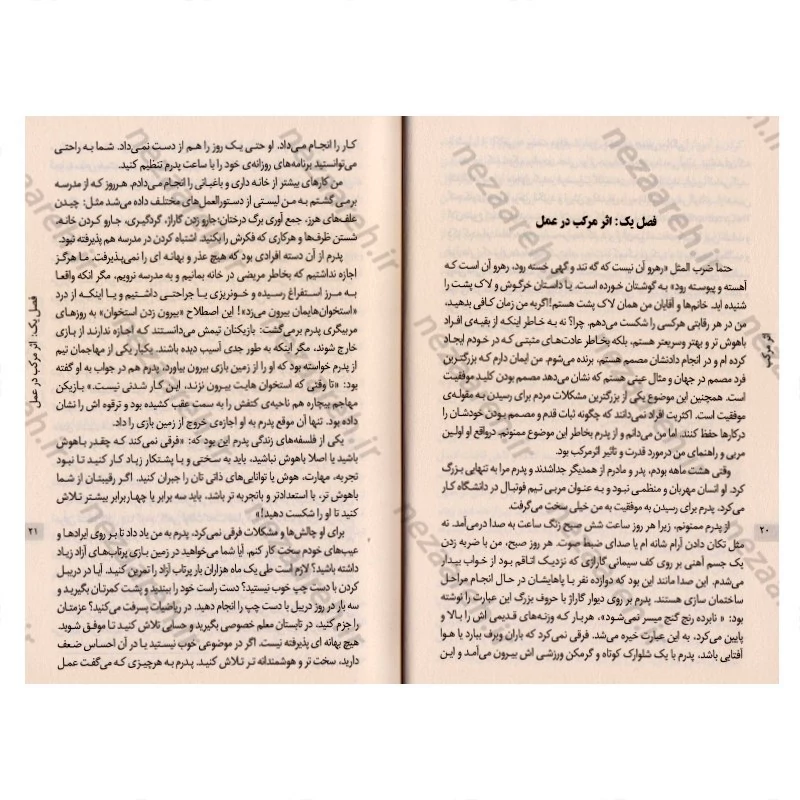 فصل یک: اثر مرکب در عمل
حتما ضرب المثل «رهرو آن نیست که گه تند و گهی خسته رود، رهرو آن است که
آهسته و پیوسته رود» به گوشتان خورده است. یا داستان خرگوش و لاک پشت را
شنیده اید. خانم‌ها و آقایان من همان لاک پشت هستم!اگر به من زمان کافی بدهید،
من در هر رقابتی هرکسی را شکست می‌دهم. چرا؟ نه به خاطر اینکه از بقیه‌ی افراد
باهوش تر و بهتر وسریعتر هستم، بلکه بخاطر عادت‌های مثبتی که در خودم ایجاد
کرده ام و در انجام دادنشان مصمم هستم، برنده می‌شوم. من ایمان دارم که بزرگترین
فرد مصمم در جهان و مثال عینی هستم که نشان می‌دهد مصمم بودن کلید موفقیت
است. همچنین این موضوع یکی از بزرگترین مشکلات مردم برای رسیدن به مقوله‌ی
موفقیت است. اکثریت افراد نمی‌دانند که چگونه ثبات قدم و مصمم بودن خودشان را
درکارها حفظ کنند. اما من می‌دانم و از پدرم بخاطر این موضوع ممنونم. درواقع او اولین
مربی و راهنمای من درمورد قدرت و تاثیر اثرمرکب بود.
وقتی هشت ماهه بودم، پدر و مادرم از همدیگر جداشدند و پدرم مرا به تنهایی بزرگ
کرد. او انسان مهربان و منظمی نبود و به عنوان مربی تیم فوتبال در دانشگاه کار
می‌کرد، پدرم برای رسیدن به موفقیت به من خیلی سخت می‌گرفت.
از پدرم ممنونم، زیرا هر روز ساعت شش صبح زنگ ساعت به صدا درمی‌آمد. نه
مثل تکان دادن آرام شانه ام یا صدای ضبط صوت. هر روز صبح، من با ضربه زدن
یک جسم آهنی بر روی کف سیمانی گاراژی که نزدیک اتاقم بود از خواب بیدار
می‌شدم. این صدا مانند این بود که دوازده نفر با پاهایشان در حال انجام مراحل
ساختمان سازی هستند. پدرم بر روی دیوار گاراژ با حروف بزرگ این عبارت را نوشته
بود: « نابرده رنج گنج میسر نمی‌شود»، هربار که وزنه‌های قدیمی اش را بالا و
پایین می‌کرد، به این عبارت خیره می‌شد. فرقی نمی‌کرد که باران وبرف ببارد یا هوا
آفتابی باشد، پدرم با یک شلوارک کوتاه و گرمکن ورزشی اش بیرون می‌آمد و این
اثر مرکب
۲۰
کار را انجام می‌داد. او حتی یک روز را هم از دست نمی‌داد. شما به راحتی
می‌توانستید برنامه‌های روزانه‌ی خود را با ساعت پدرم تنظیم کنید.
من کارهای بیشتر از خانه داری و باغبانی را انجام می‌دادم. هرروز که از مدرسه
برمی گشتم به من لیستی از دستورالعمل‌های مختلف داده می‌شد مثل: چیدن
علف‌های هرز، جمع آوری برگ درختان؛جارو زدن گاراژ، گردگیری، جارو کردن خانه،
شستن ظرف‌ها و هرکاری که فکرش را بکنید. اشتباه کردن در مدرسه هم پذیرفته نبود.
پدرم از آن دسته افرادی بود که هیچ عذر و بهانه ای را نمی‌پذیرفت. ما هرگز
اجازه نداشتیم که بخاطر مریضی در خانه بمانیم و به مدرسه نرویم، مگر آنکه واقعا
به مرز استفراغ رسیده و خونریزی یا جراحتی داشتیم و یا اینکه از درد
«استخوان‌هایمان بیرون می‌زد»! این اصطلاح «بیرون زدن استخوان» به روزهای
مربیگری پدرم برمی‌گشت: بازیکنان تیمش می‌دانستند که اجازه ندارند از بازی
خارج شوند، مگر اینکه به طور جدی آسیب دیده باشند. یکبار یکی از مهاجمان تیم
از پدرم خواسته بود که او را از زمین بازی بیرون بیاورد، پدرم هم در جواب به او گفته
بود: «تا وقتی که استخوان هایت بیرون نزند، این کار شدنی نیست.» بازیکن
مهاجم بیچاره هم ناحیه‌ی کتفش را به سمت عقب کشیده بود و ترقوه اش را نشان
داده بود. تنها آن موقع پدرم به او اجازه‌ی خروج از زمین بازی را داد.
یکی از فلسفه‌های زندگی پدرم این بود که: «فرقی نمی‌کند که چقدر باهوش
باشید یا اصلا باهوش نباشید، باید به سختی و با پشتکار زیاد کار کنید تا نبود
تجربه، مهارت، هوش یا توانایی‌های ذاتی تان را جبران کنید. اگر رقیبتان از شما
باهوش تر، با استعدادتر و باتجربه تر باشد، باید سه برابر یا چهاربرابر بیشتر تلاش
کنید تا او را شکست دهید!»
برای او چالش‌ها و مشکلات فرقی نمی‌کرد، پدرم به من یاد داد تا بر روی ایرادها و
عیب‌های خودم سخت کار کنم. آیا شما می‌خواهید در زمین بازی پرتاب‌های آزاد زیاد
داشته باشید؟ لازم است طی یک ماه هزاران بار پرتاب آزاد را تمرین کنید. آیا در دریبل
کردن با دست چپ خوب نیستید؟ دست راست خود را ببندید و پشت کمرتان بگیرید و
سه بار در روز دریبل با دست چپ را انجام دهید. در ریاضیات پسرفت می‌کنید؟ عزمتان
را جزم کنید. در تابستان معلم خصوصی بگیرید و حسابی تلاش کنید تا موفق شوید.
هیچ بهانه ای پذیرفته نیست. اگر در موضوعی خوب نیستید یا در آن احساس ضعف
دارید، سخت تر و هوشمندانه تر تلاش کنید. پدرم به هرچیزی که می‌گفت عمل
فصل یک: اثر مرکب در عمل
۲۱
nezaareh.ir